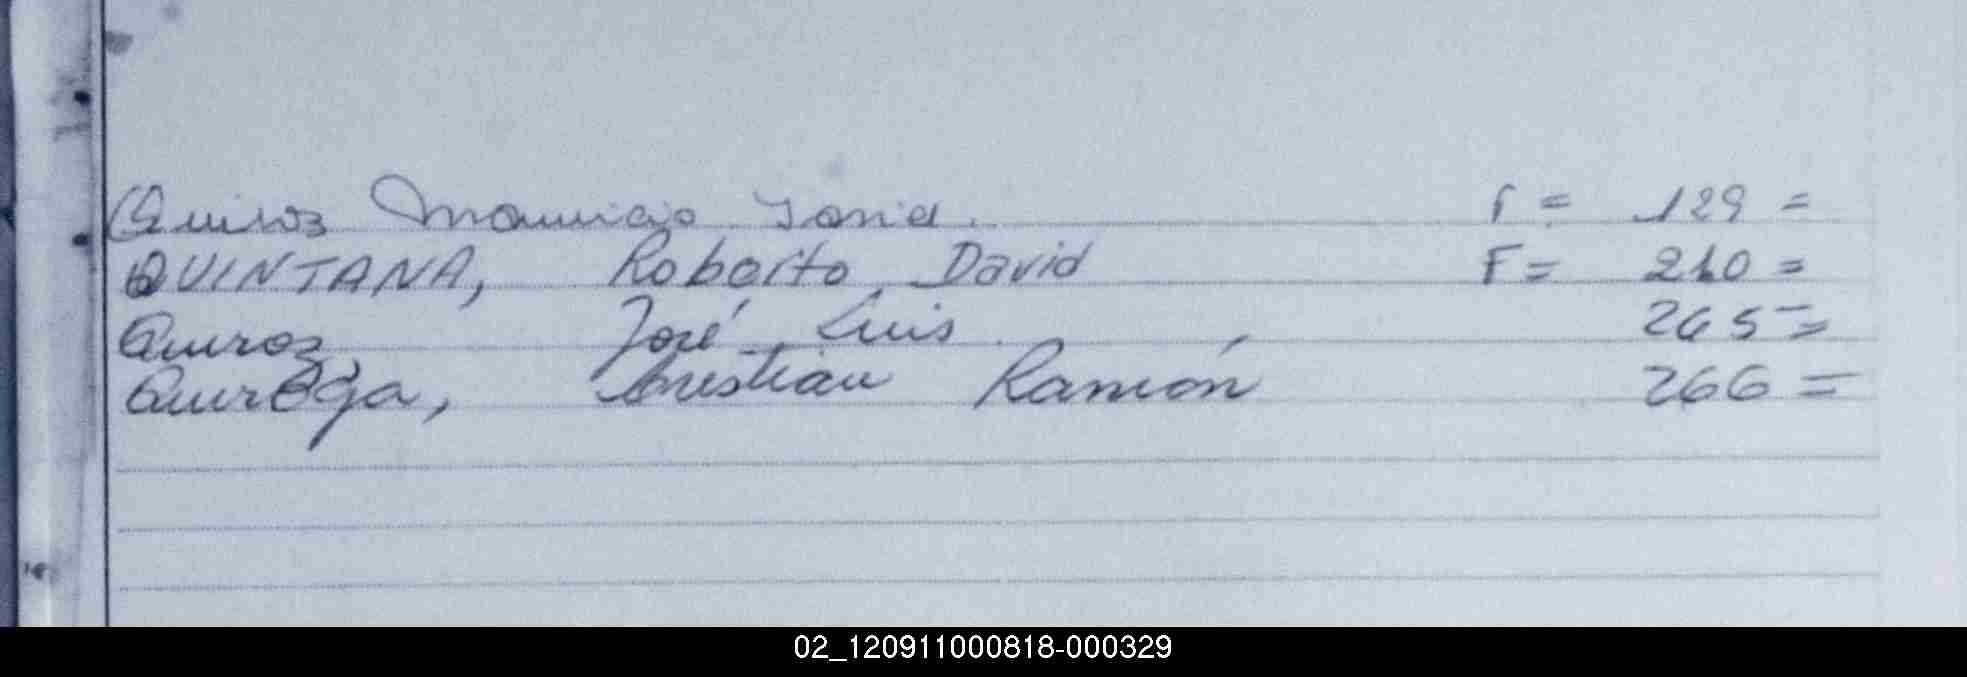 Quiroz Mauricio F = 129 =
QUINTANA, Roberto David F = 210 =
Quiroz, José Luis 265 =
Quiroga, Cristian Ramón 266 =
02_120911000818-000329